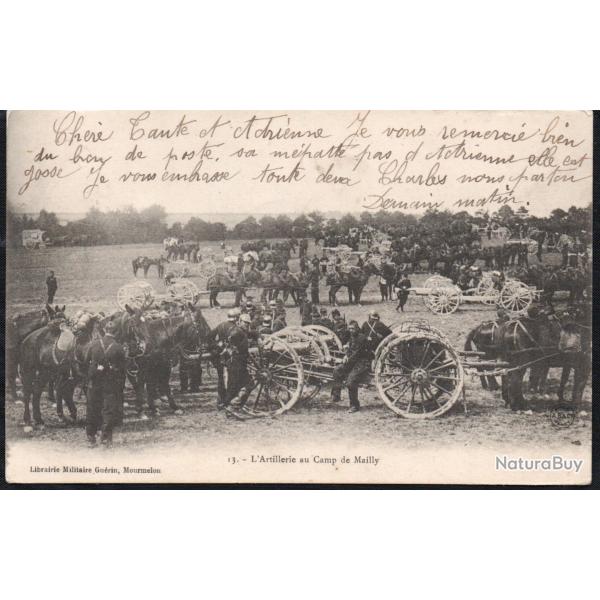 Chère Tante et Adrienne Je vous remercie bien
du bon de poste, sa m'épatte pas d'Adrienne elle est
gosse Je vous embrasse toute deux Charles nous parton
Demain matin.
13. - L'Artillerie au Camp de Mailly
Librairie Militaire Guérin, Mourmelon
NaturaBuy